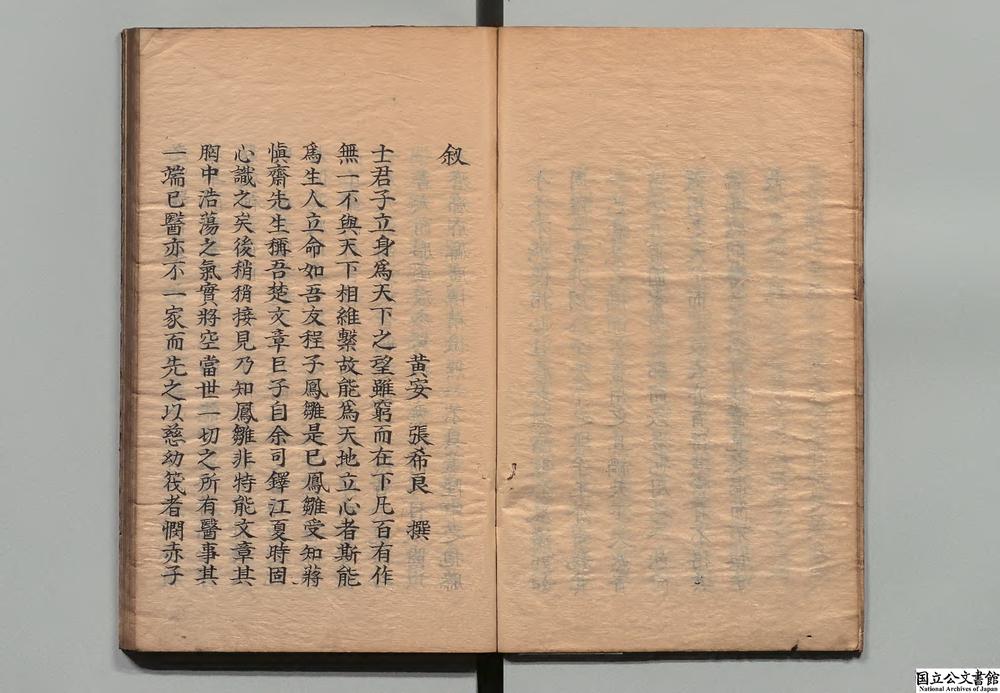 叙
黃安 張希良 撰
士君子立身爲天下之望雖窮而在下凡百有作
無一不與天下相維繫故能爲天地立心者斯能
爲生人立命如吾友程子鳳雛是已鳳雛受知蔣
愼齋先生稱吾楚文章巨子自余司鐸江夏時固
心識之矣後稍稍接見乃知鳳雛非特能文章其
胸中浩蕩之氣實將空當世一切之所有醫事其
一端已醫亦不一家而先之以慈幼筏者憫赤子
国立公文書館
National Archives of Japan